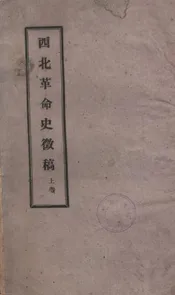 西北革命史徵稿
上卷